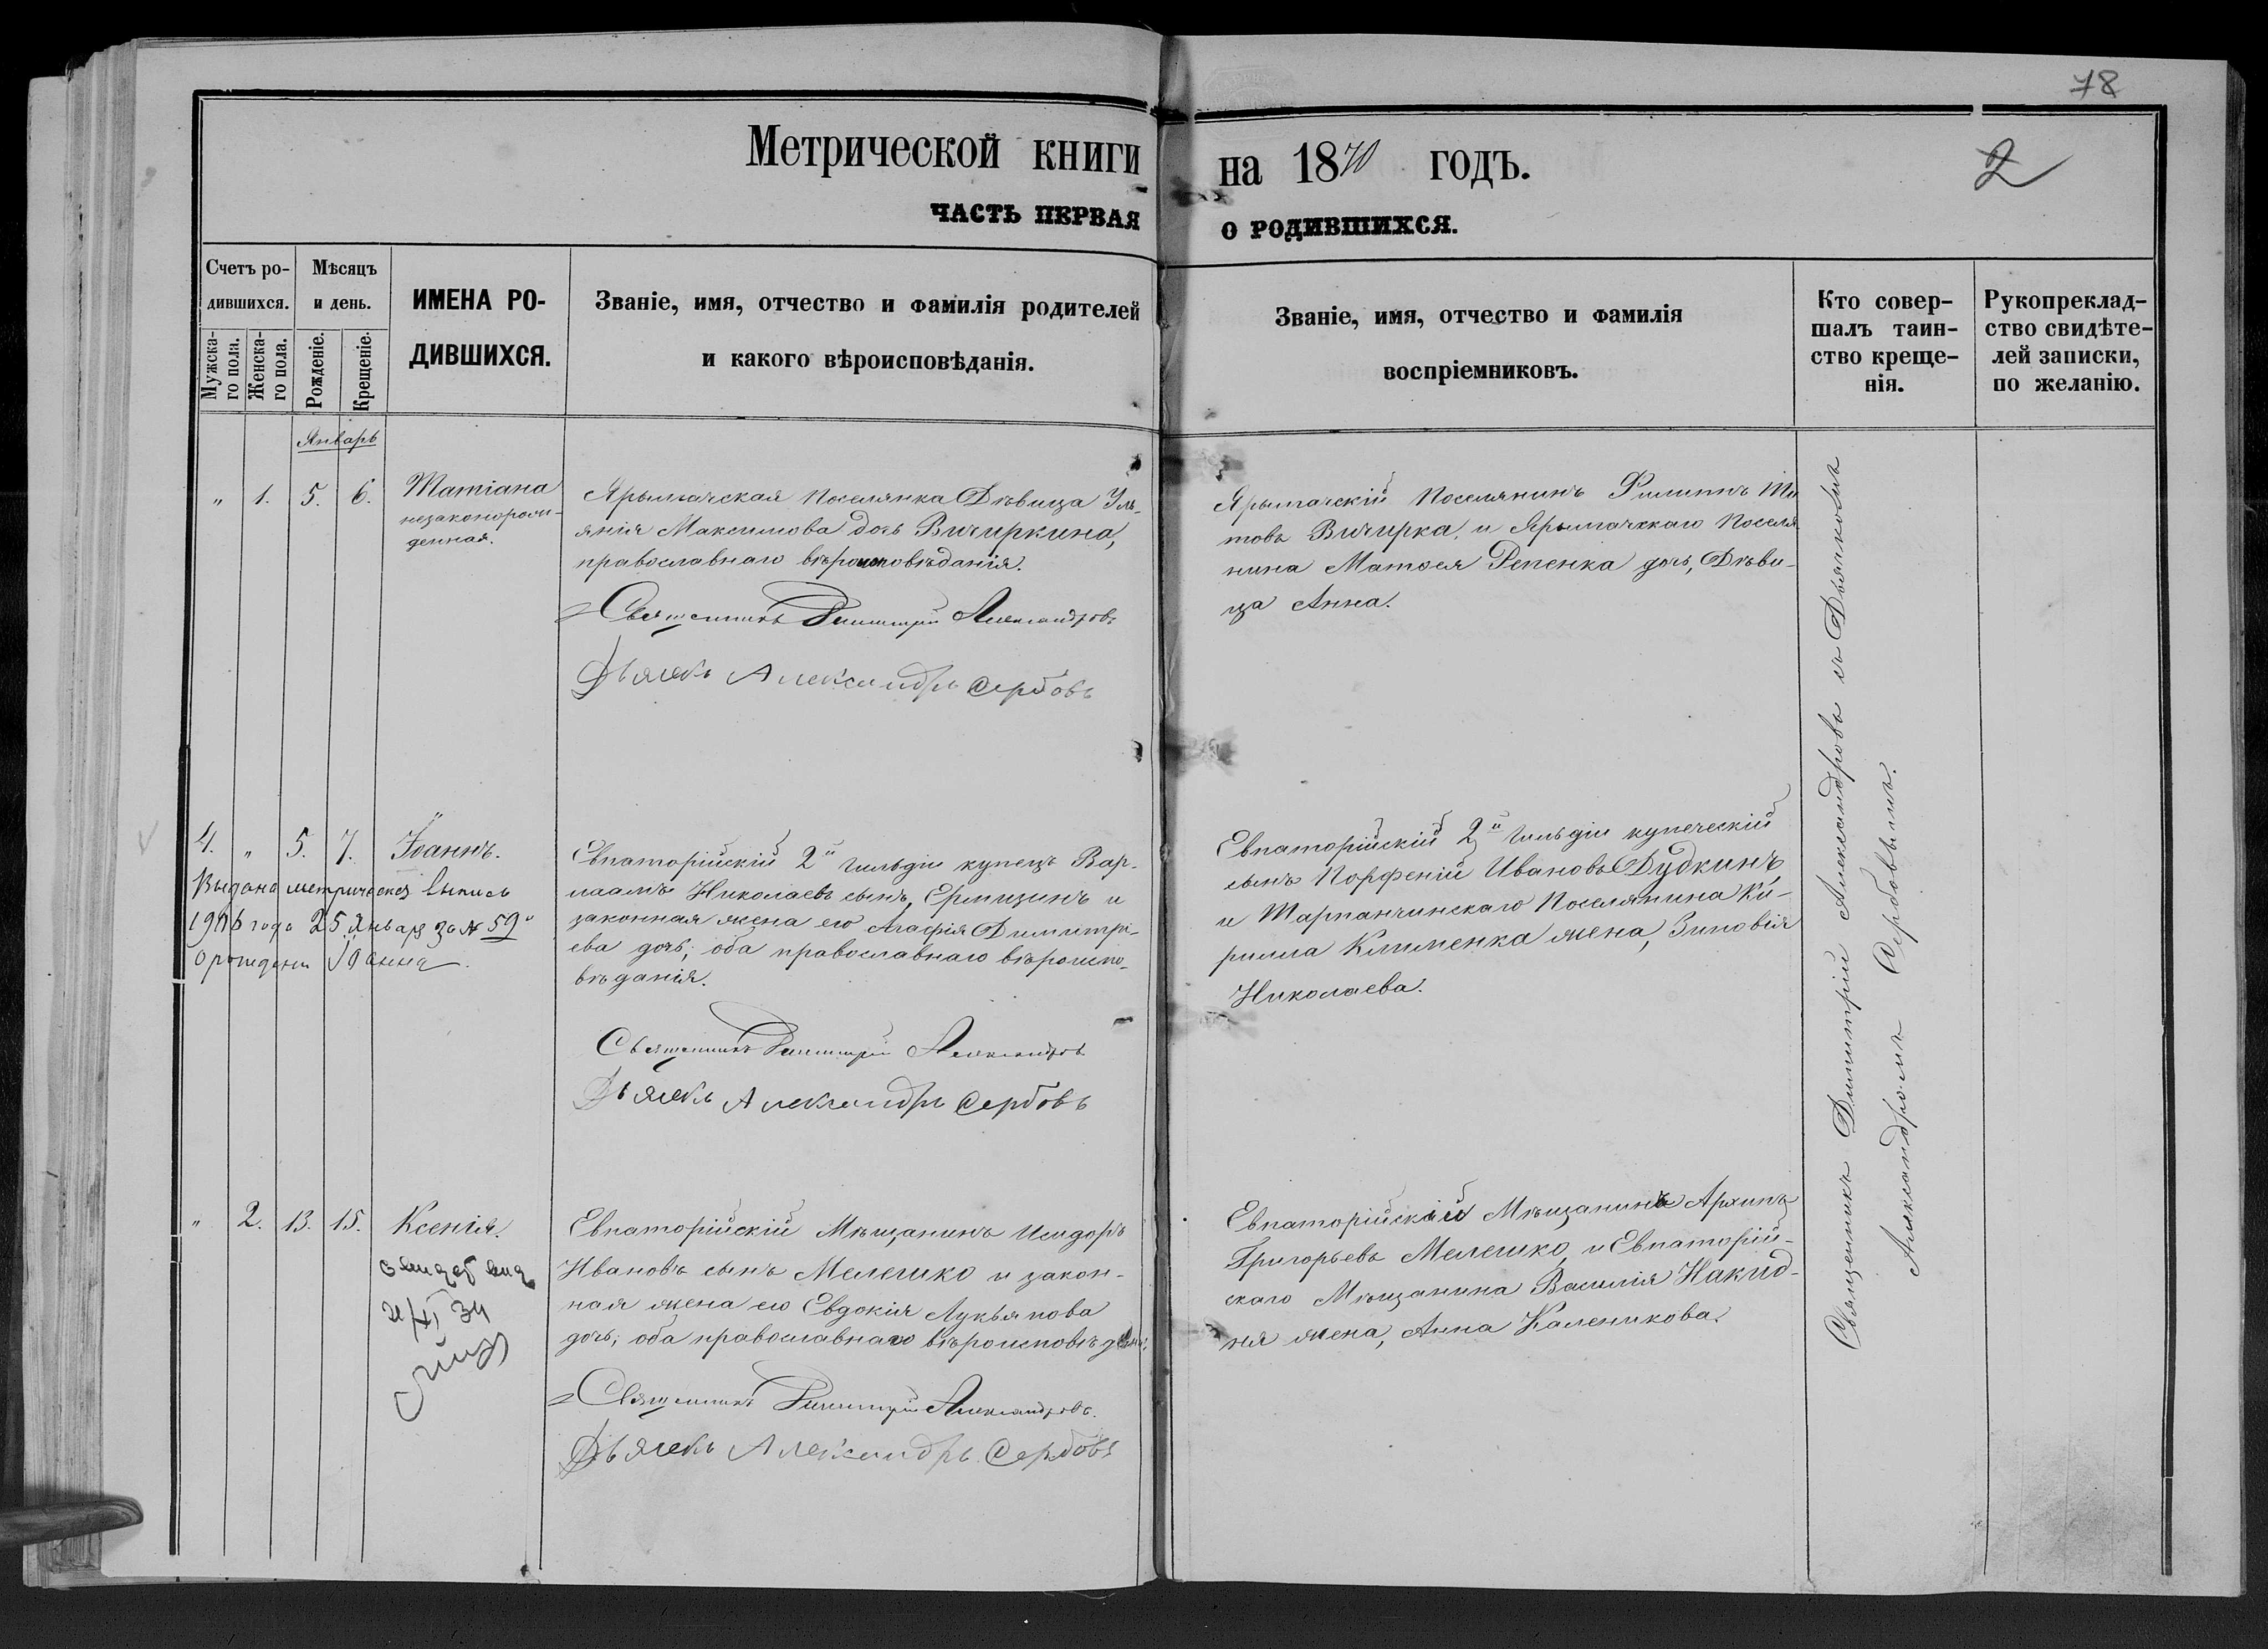 78
Метрической книги на 1870 годъ.
2
ЧАСТЬ ПЕРВАЯ О РОДИВШИХСЯ.
Счетъ ро-
дившихся.
Мужска-
го пола.
Женска-
го пола.
Мѣсяцъ
и день.
Рожденіе.
Крещеніе.
ИМЕНА РО-
ДИВШИХСЯ.
Званіе, имя, отчество и фамилія родителей
и какого вѣроисповѣданія.
Званіе, имя, отчество и фамилія
воспріемниковъ.
Кто совер-
шалъ таин-
ство креще-
нія.
Рукопреклад-
ство свидѣте-
лей записки,
по желанію.
Январь
" 1. 5. 6.
Татіана
незаконорож-
денная.
Ярылгачская Поселянка Дѣвица Улі-
янія Максимова дочь Вичиркина,
православнаго вѣроисповѣданія.
Священникъ Димитрій Александровъ
Дьячекъ Александръ Сербовъ
Ярылгачскій Поселянинъ Филиппъ Ти
товъ Вичирка, и Ярылгачскаго Поселя
нина Матѳея Репенка дочь, Дѣви-
ца Анна.
4. " 5. 7. Іоаннъ.
Выдана метрическая выпись
1916 года 25 Января за № 59
о рождении Іоанна
Евпаторійскій 2й Гильдіи купецъ Вар-
лаамъ Николаевъ сынъ, Ермизинъ и
законная жена его Агафія Димитрі-
ева дочь; оба православнаго вѣроиспо-
вѣданія.
Священникъ Димитрій Александровъ
Дьячекъ Александръ Сербовъ
Евпаторійскій 2й Гильдіи купеческій
сынъ Порфеній Ивановъ Дудкинъ,
и Тарпанчинскаго Поселянина Ки-
рилла Клименка жена, Зиновія
Николаева.
" 2. 13. 15. Ксенія.
34
Евпаторійскій Мѣщанинъ Исидоръ
Ивановъ сынъ Мелешко и закон-
ная жена его Евдокія Лукьянова
дочь; оба православнаго вѣроисповѣдані.
Священникъ Димитрій Александровъ.
Дьячекъ Александръ Сербовъ
Евпаторійскій Мѣщанинъ Архипъ
Григорьевъ Мелешко, и Евпаторій-
скаго Мѣщанина Василія Накид-
ня жена, Анна Каленикова.
Священникъ Димитрій Александровъ съ Дьячкомъ
Александромъ Сербовымъ.